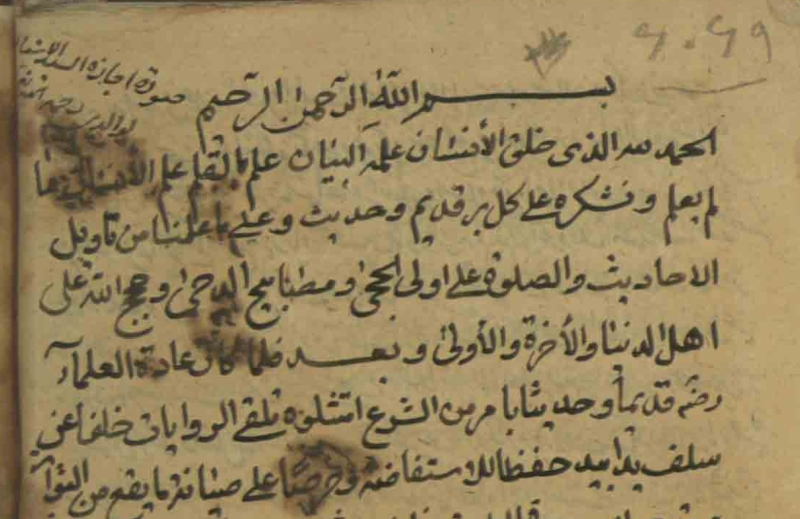 صورة اجازة السيد
بسم الله الرحمن الرحيم
الحمد لله الذى خلق الأنسان علمه البيان علم بالقلم علم الانسان ما
لم يعلم ونشكره على كل بر قديم وحديث وعلى ما علمنا من تأويل
الاحاديث والصلوة على اولى الحجى ومصابيح الدجى وحجج الله على
اهل الدنيا والأخرة والأولى وبعد فلما كان عادة العلمآء
قديماً وحديثا بامر من الشرع امتثلوه تلقى الروايات خلفا عن
سلف يدا بيد حفظا للاستفاضة وحرصاً على صيانة ما يقع من